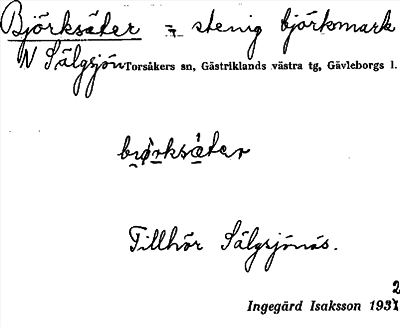 Björksäter = stenig björkmark
N Sälgsjön Torsåkers sn, Gästriklands västra tg, Gävleborgs l.
bi̯ørksä́ter
Tillhör Sälgsjönäs.
Ingegärd Isaksson 1932